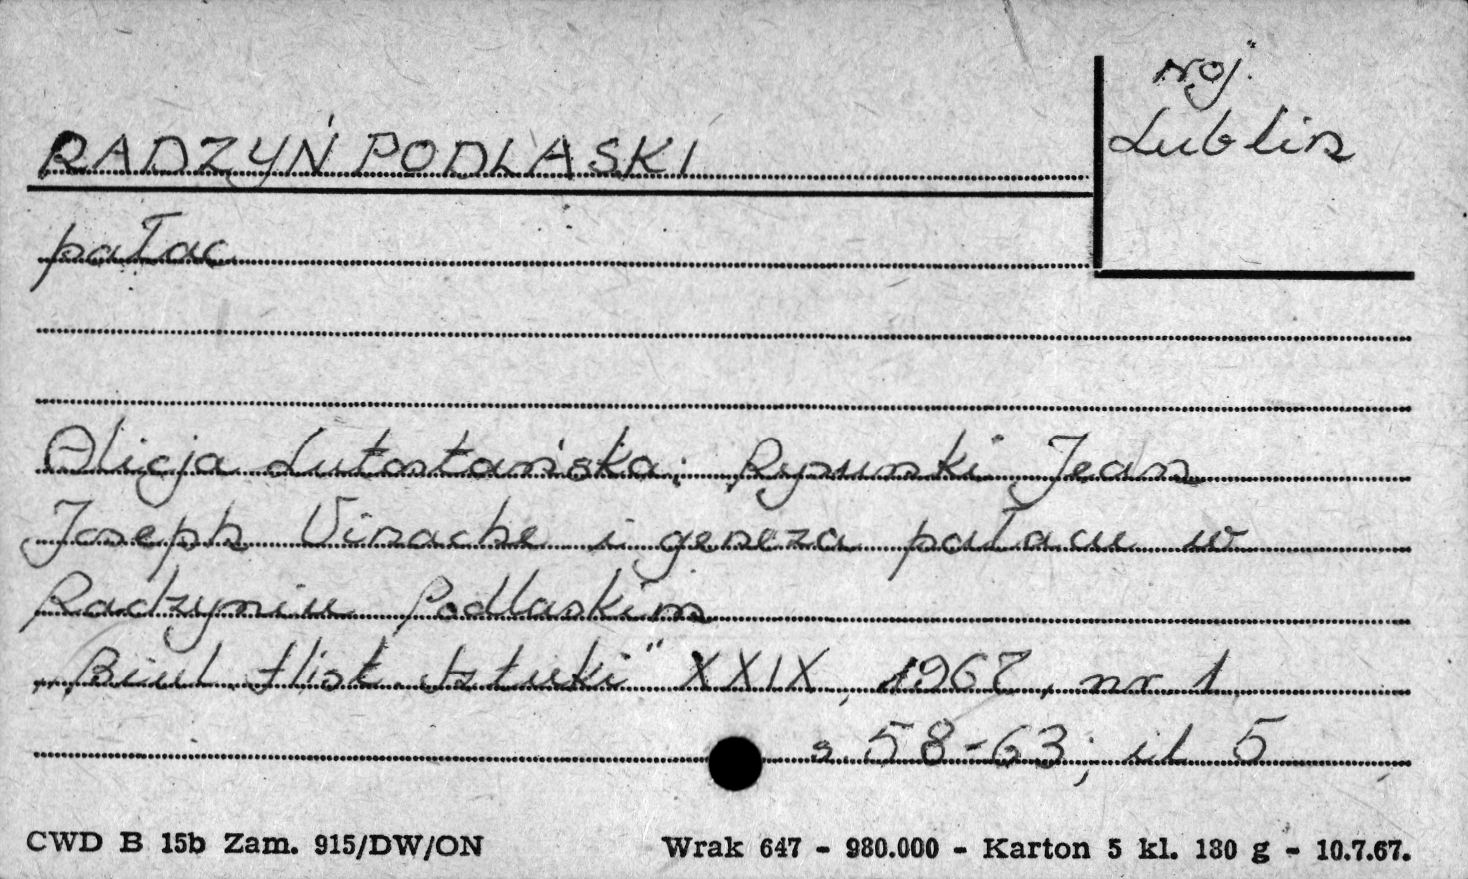 woj.
Lublin
RADZYŃ PODLASKI
pałac
Alicja Lutostańska; Rysunki Jean
Joseph Vinache i geneza pałacu w
Radzyniu Podlaskim
„Biul. Hist. Sztuki" XXIX, 1967, nr. 1
s. 58-63; il. 5
CWD B 15b Zam. 915/DW/ON Wrak 647 - 980.000 - Karton 5 kl. 180 g - 10.7.67.